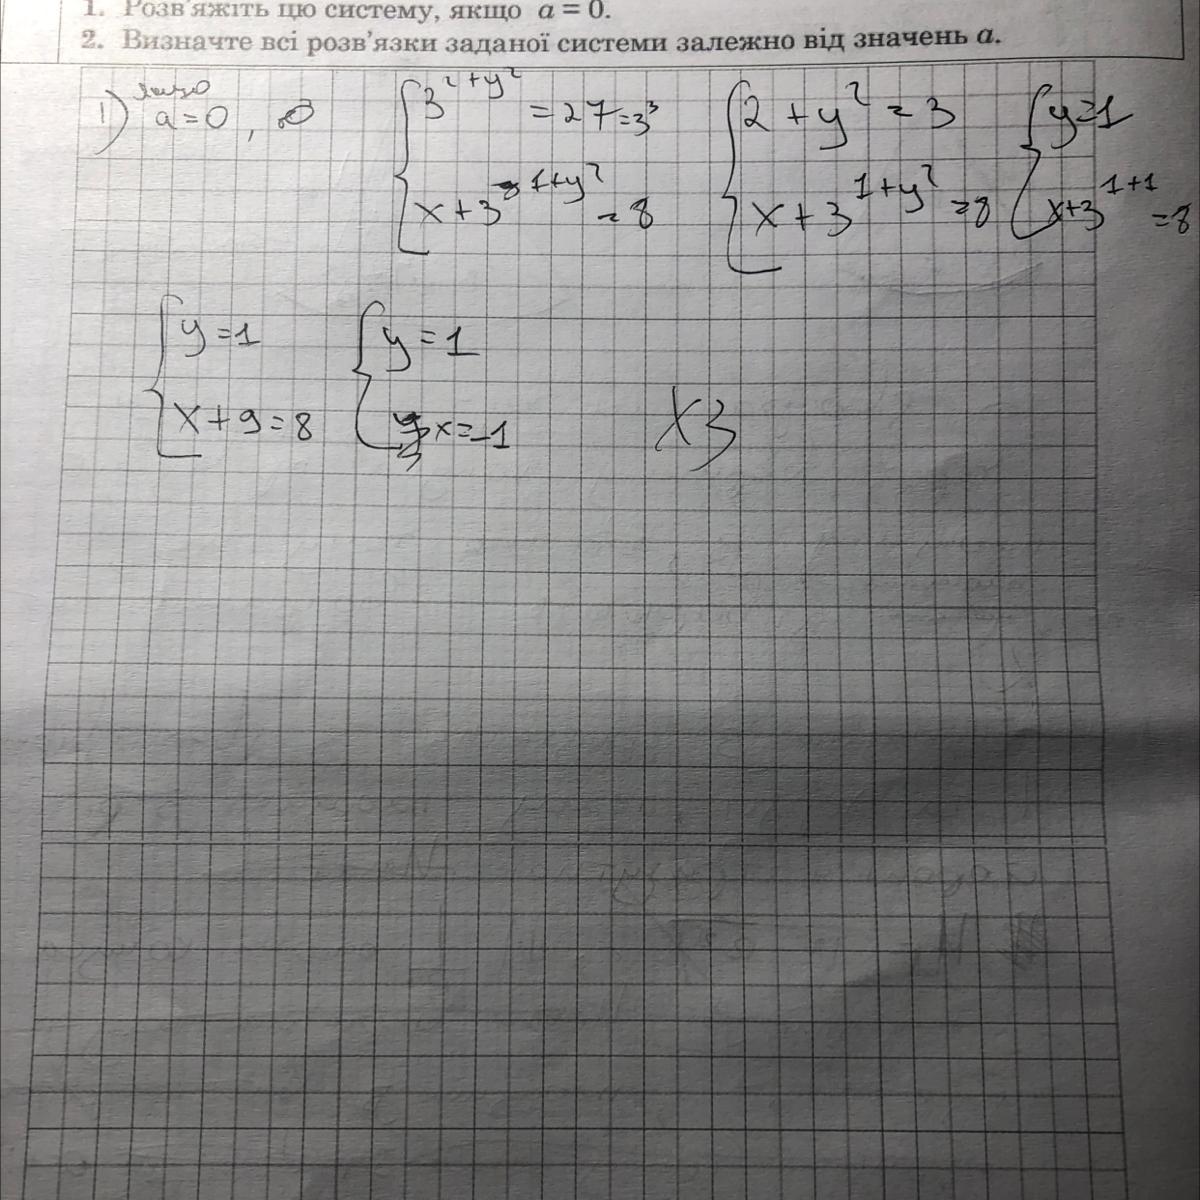 1. Розв'яжіть цю систему, якщо a = 0.
2. Визначте всі розв'язки заданої системи залежно від значень a.
1) якщо a=0,
{ 3^{2+y^2} = 27 = 3^3
x+3^{1+y^2} = 8
{ 2+y^2 = 3
x+3^{1+y^2} = 8
{ y=1
x+3^{1+1} = 8
{ y=1
x+9=8
{ y=1
x=-1
X3